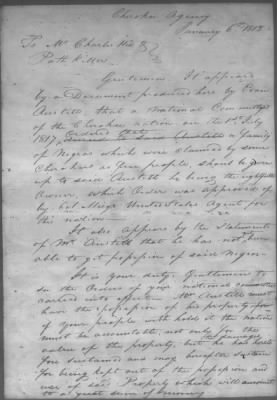 Cherokee Agency
January 6th 1818
To Mr Charles Hicks &
Path Killer
Gentlemen It appears
by a Document produced here by Evan
Austill that a National Committee
of the Cherokee nation on the 1st July
1817, Ordered that a family
of Negros which were claimed by some
Cherokees as there people, should be given
up to said Austill he being the rightfull
owner, which Order was approved of
by Col. Meigs United States Agent for
this nation
It also appears by the Statement
of Mr Austill that he has not been
able to get possession of said Negros
It is your duty, Gentlemen to
see the Orders of your national committee
carried into effect. Mr Austill must
have the possession of his property, for
if your people with hold it the nation
must be accountable, not only for the
value of the property, but the damages he has
sustained and may hereafter sustain
for being kept out of the possession and
use of said Property which will amount
to a great sum of money